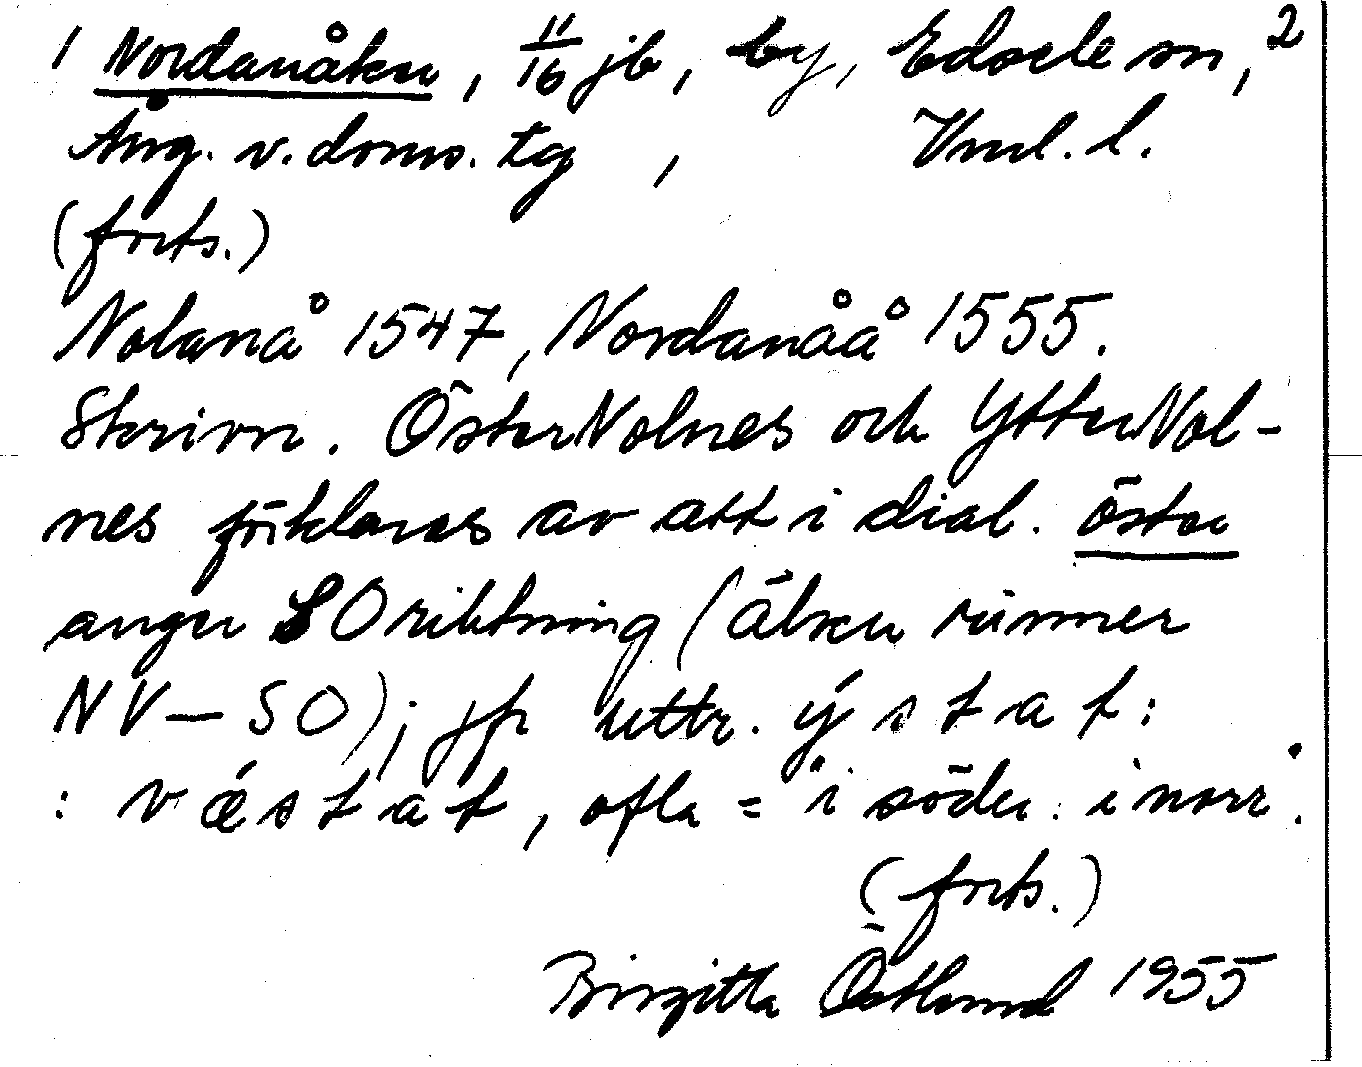 1 Nordanåker, 11/16 jb, by, Edsele sn, 2
Ång. v. doms. tg , Vnl. l.
(forts.)
Nolanå 1547, Nordanåå 1555.
Skrivn. ÖsterNolnes och YtterNol-
nes förklaras av att i dial. öster
anger SO riktning (älven rinner
NV-SO); jfr uttr. ý s t a t :
: v ǽ s t a t , ofta = "i söder : i norr".
(forts.)
Birgitta Östlund 1955